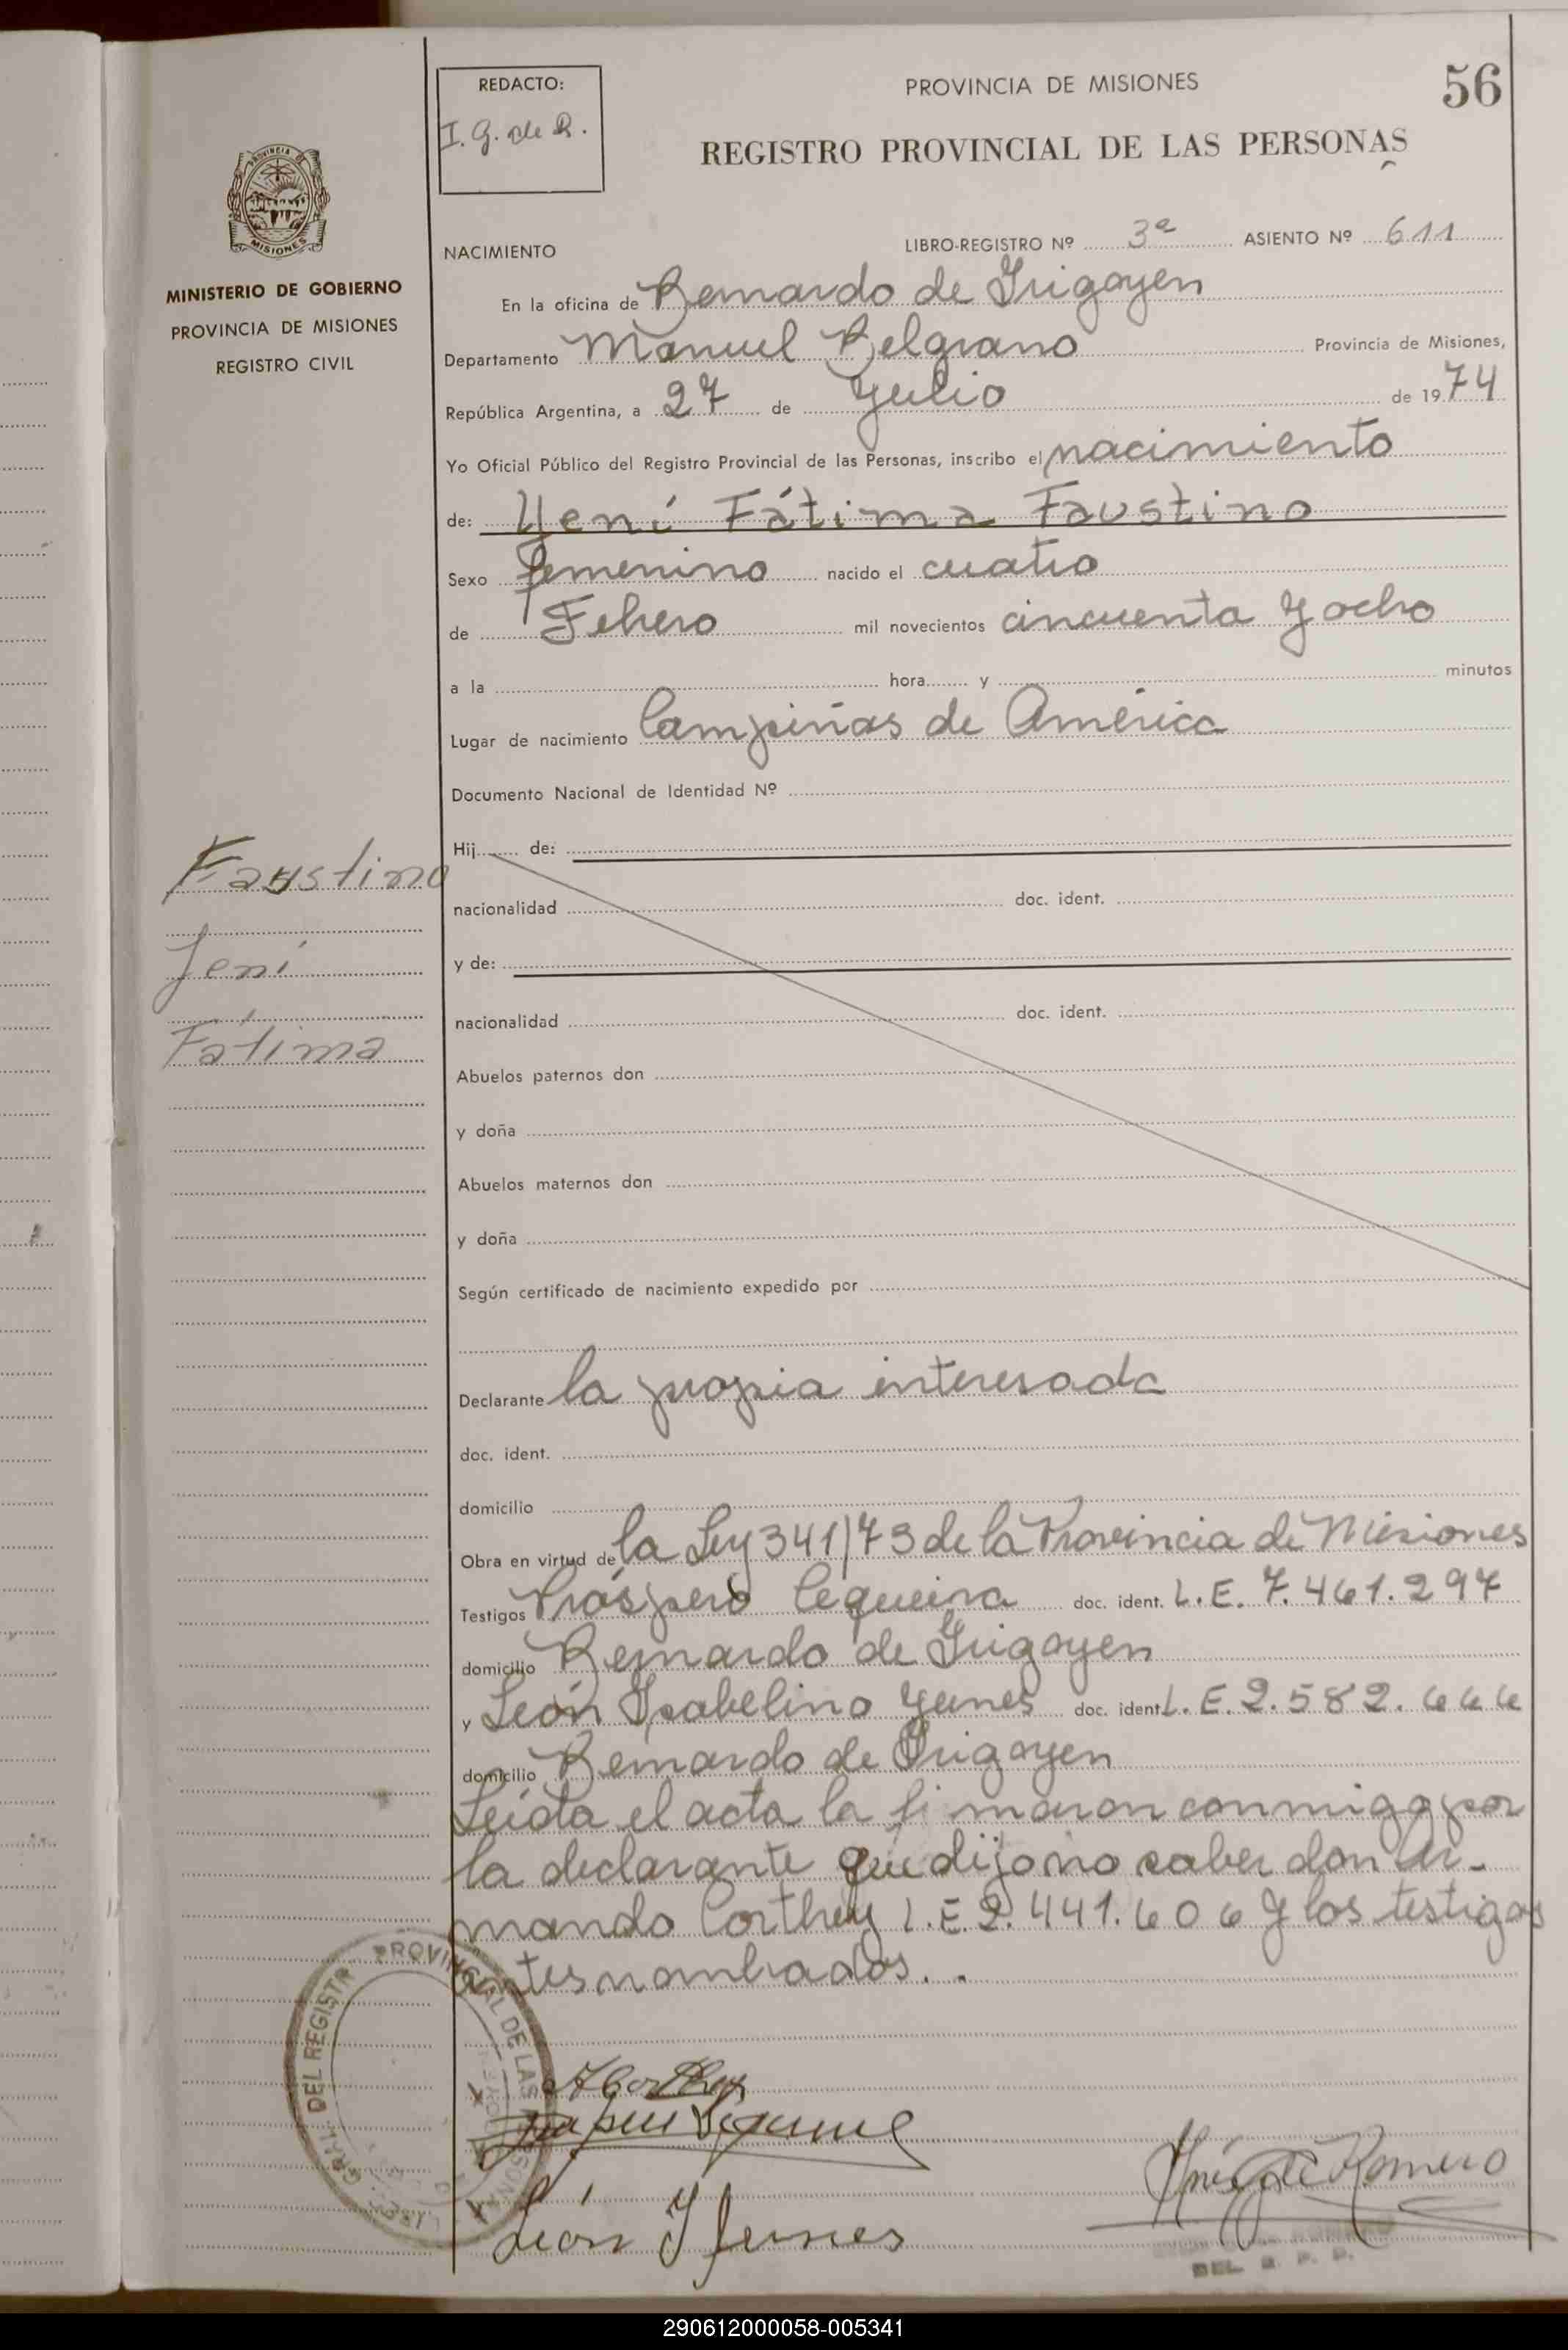 56
REDACTO:
I. G. de R.
PROVINCIA DE MISIONES
REGISTRO PROVINCIAL DE LAS PERSONAS
PROVINCIA DE
MISIONES
MINISTERIO DE GOBIERNO
PROVINCIA DE MISIONES
REGISTRO CIVIL
NACIMIENTO
LIBRO-REGISTRO Nº 3ª ASIENTO Nº 611
En la oficina de Bernardo de Irigoyen
Departamento Manuel Belgrano Provincia de Misiones,
República Argentina, a 27 de Julio de 1974
Yo Oficial Público del Registro Provincial de las Personas, inscribo el nacimiento
de: Yení Fátima Faustino
Sexo femenino nacido el cuatro
de Febrero mil novecientos cincuenta y ocho
a la hora y minutos
Lugar de nacimiento Campiñas de América
Documento Nacional de Identidad Nº
Hij de:
Faustino
nacionalidad doc. ident.
y de:
Jení
nacionalidad doc. ident.
Fátima
Abuelos paternos don
y doña
Abuelos maternos don
y doña
Según certificado de nacimiento expedido por
Declarante la propia interesada
doc. ident.
domicilio
Obra en virtud de la Ley 341/73 de la Provincia de Misiones
Testigos Próspero Cequeira doc. ident. L.E. 7.461.297
domicilio Bernardo de Irigoyen
y León Isabelino Yunes doc. ident L.E. 2.582.666
domicilio Bernardo de Irigoyen
Leída el acta la firmaron conmigo por
la declarante que dijo no saber don Ar-
mando Corthey L.E 2.441.606 y los testigos
antes nombrados..
GRAL. DEL REGISTR PROVINCIAL DE LAS PERSONAS
León I Yunes
Inés G de Romero
DEL R. P. P.
290612000058-005341